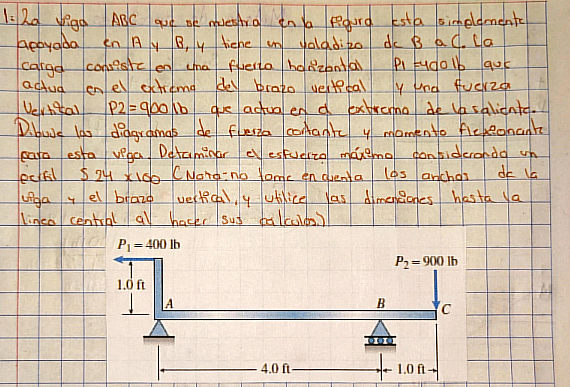 1: La viga ABC que se muestra en la figura esta simplemente
apoyada en A y B, y tiene un voladizo de B a C. La
carga consiste en una fuerza horizontal P1 = 400 lb que
actua en el extremo del brazo vertical y una fuerza
Vertical P2 = 900 lb que actua en el extremo de la saliente.
Dibuje las diagramas de fuerza cortante y momento flexionante
para esta viga. Determinar el esfuerzo máximo considerando un
perfil S 24 x 100 (Nota: no tome en cuenta los anchos de la
viga y el brazo vertical, y utilice las dimensiones hasta la
linea central al hacer sus calculos.)
P₁ = 400 lb
P₂ = 900 lb
1.0 ft
A
B
C
4.0 ft
1.0 ft